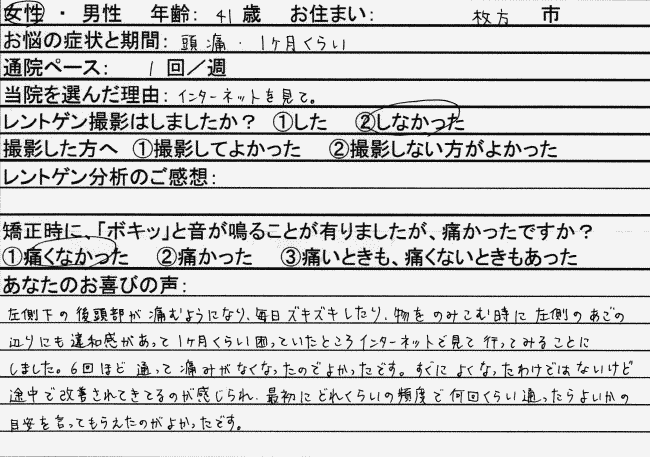 女性 ・ 男性 年齢: 41 歳 お住まい: 枚方 市
お悩の症状と期間: 頭痛・1ヶ月くらい
通院ペース: 1 回／週
当院を選んだ理由: インターネットを見て。
レントゲン撮影はしましたか？ ①した ②しなかった
撮影した方へ ①撮影してよかった ②撮影しない方がよかった
レントゲン分析のご感想:
矯正時に、「ボキッ」と音が鳴ることが有りましたが、痛かったですか？
①痛くなかった ②痛かった ③痛いときも、痛くないときもあった
あなたのお喜びの声:
左側下の後頭部が痛むようになり、毎日ズキズキしたり、物をのみこむ時に左側のあごの
辺りにも違和感があって1ヶ月くらい困っていたところインターネットで見て行ってみることに
しました。6回ほど通って痛みがなくなったのでよかったです。すぐによくなったわけではないけど
途中で改善されてきてるのが感じられ、最初にどれくらいの頻度で何回くらい通ったらよいかの
目安を言ってもらえたのがよかったです。